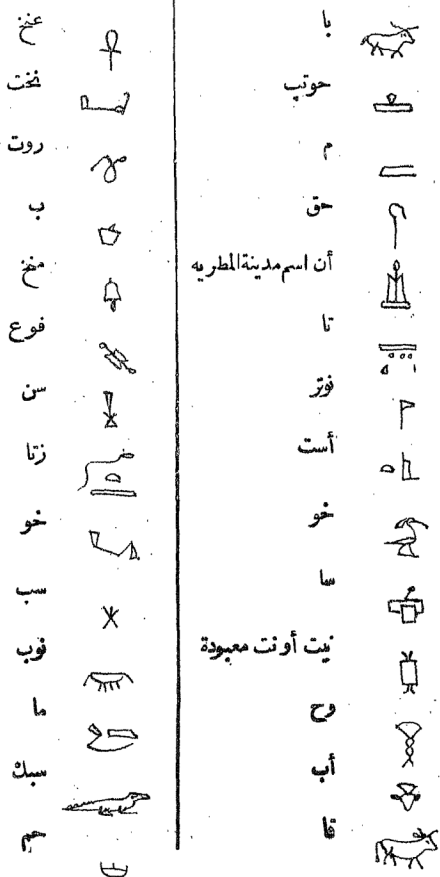 با
حوتپ
م
حق
أن اسم مدينة المطريه
تا
نوتر
أست
خو
سا
نيت أو نت معبودة
وح
أب
قا
عنخ
نخت
روت
ب
منخ
فوع
سن
زتا
خو
سب
نوب
ما
سبك
هم